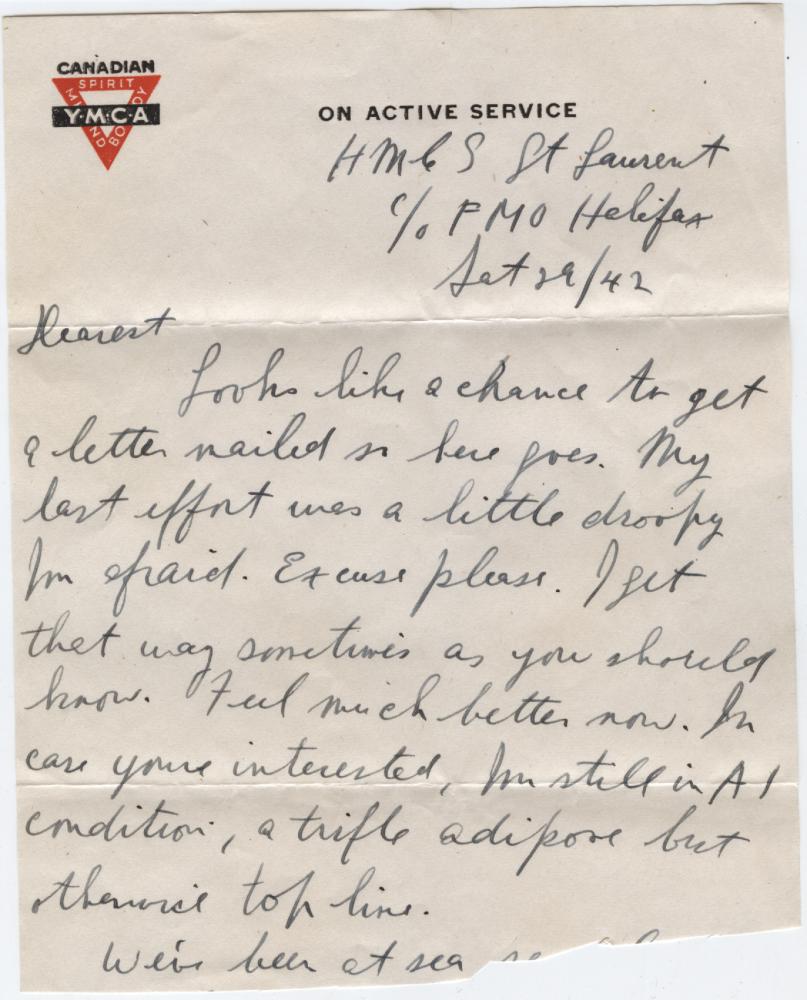 CANADIAN
SPIRIT
Y·M·C·A
MIND
BODY
ON ACTIVE SERVICE
HMCS St Laurent
c/o FMO Halifax
Sat 29/42
Dearest
Looks like a chance to get
a letter mailed so here goes. My
last effort was a little droopy
Im afraid. Excuse please. I get
that way sometimes as you should
know. Feel much better now. In
case youre interested, Im still in A1
condition, a trifle adipose but
otherwise top line.
Weve been at sea